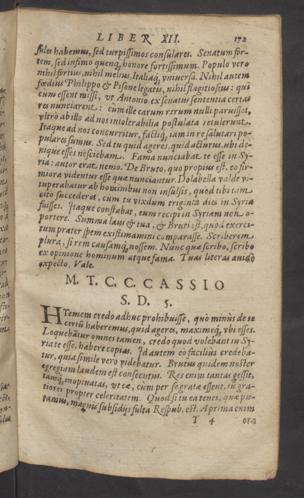 LIBER XII. 172
fides habemus, sed turpissimos consulares. Senatum for-
tem, sed infimo quenq; honore fortissimum. Populo vero
nihil fortius, nihil melius, Italiaq; vniuersa. Nihil autem
fœdius Philippo & Pisone legatis, nihil flagitiosius: qui
cum essent missi, vt Antonio ex senatus sententia certas
res nunciarent: cum ille earum rerum nulli paruisset,
vltrò ab illo ad nos intolerabilia postulata retulerunt.
Itaque ad nos concurritur, factiq; iam in re salutari po-
pulares sumus. Sed tu quid ageres, quid acturus, vbi de-
nique esses nesciebam. Fama nunciabat te esse in Sy-
ria: autor erat nemo. De Bruto, quo propius est, eo fir-
miora videntur esse qua nunciantur. Dolabella valde vi-
tuperabatur ab hominibus non insulsis, quod tibi tam
citò succederet, cum tu vixdum triginta dies in Syria
fuisses. Itaque constabat, eum recipi in Syriam non o-
portere. Summa laus & tua, & Bruti est, quòd exerci-
tum prater spem existimamini comparasse. Scriberem
plura, si rem causamq; nossem. Nunc qua scribo, scribo
ex opinione hominum atque fama. Tuas literas auidè
expecto. Vale.
M. T. C. C. CASSIO
S. D. 5.
HIemem credo adhuc prohibuisse, quò minùs de te
certum haberemus, quid ageres, maximeq; vbi esses.
Loquebantur omnes tamen, credo quòd volebant in Sy-
ria te esse, habere copias. Id autem eò faciliùs credeba-
tur, quia simile vero videbatur. Brutus quidem noster
egregiam laudem est consecutus. Res enim tantas gessit,
tamq; inopinatas, vt ea, cùm per se grata essent,
tiores propter celeritatem. Quòd si tu ea tenes, qua pu-
tamus, magnis subsidijs fulta Respub. est. A prima enim
Y 4 ora